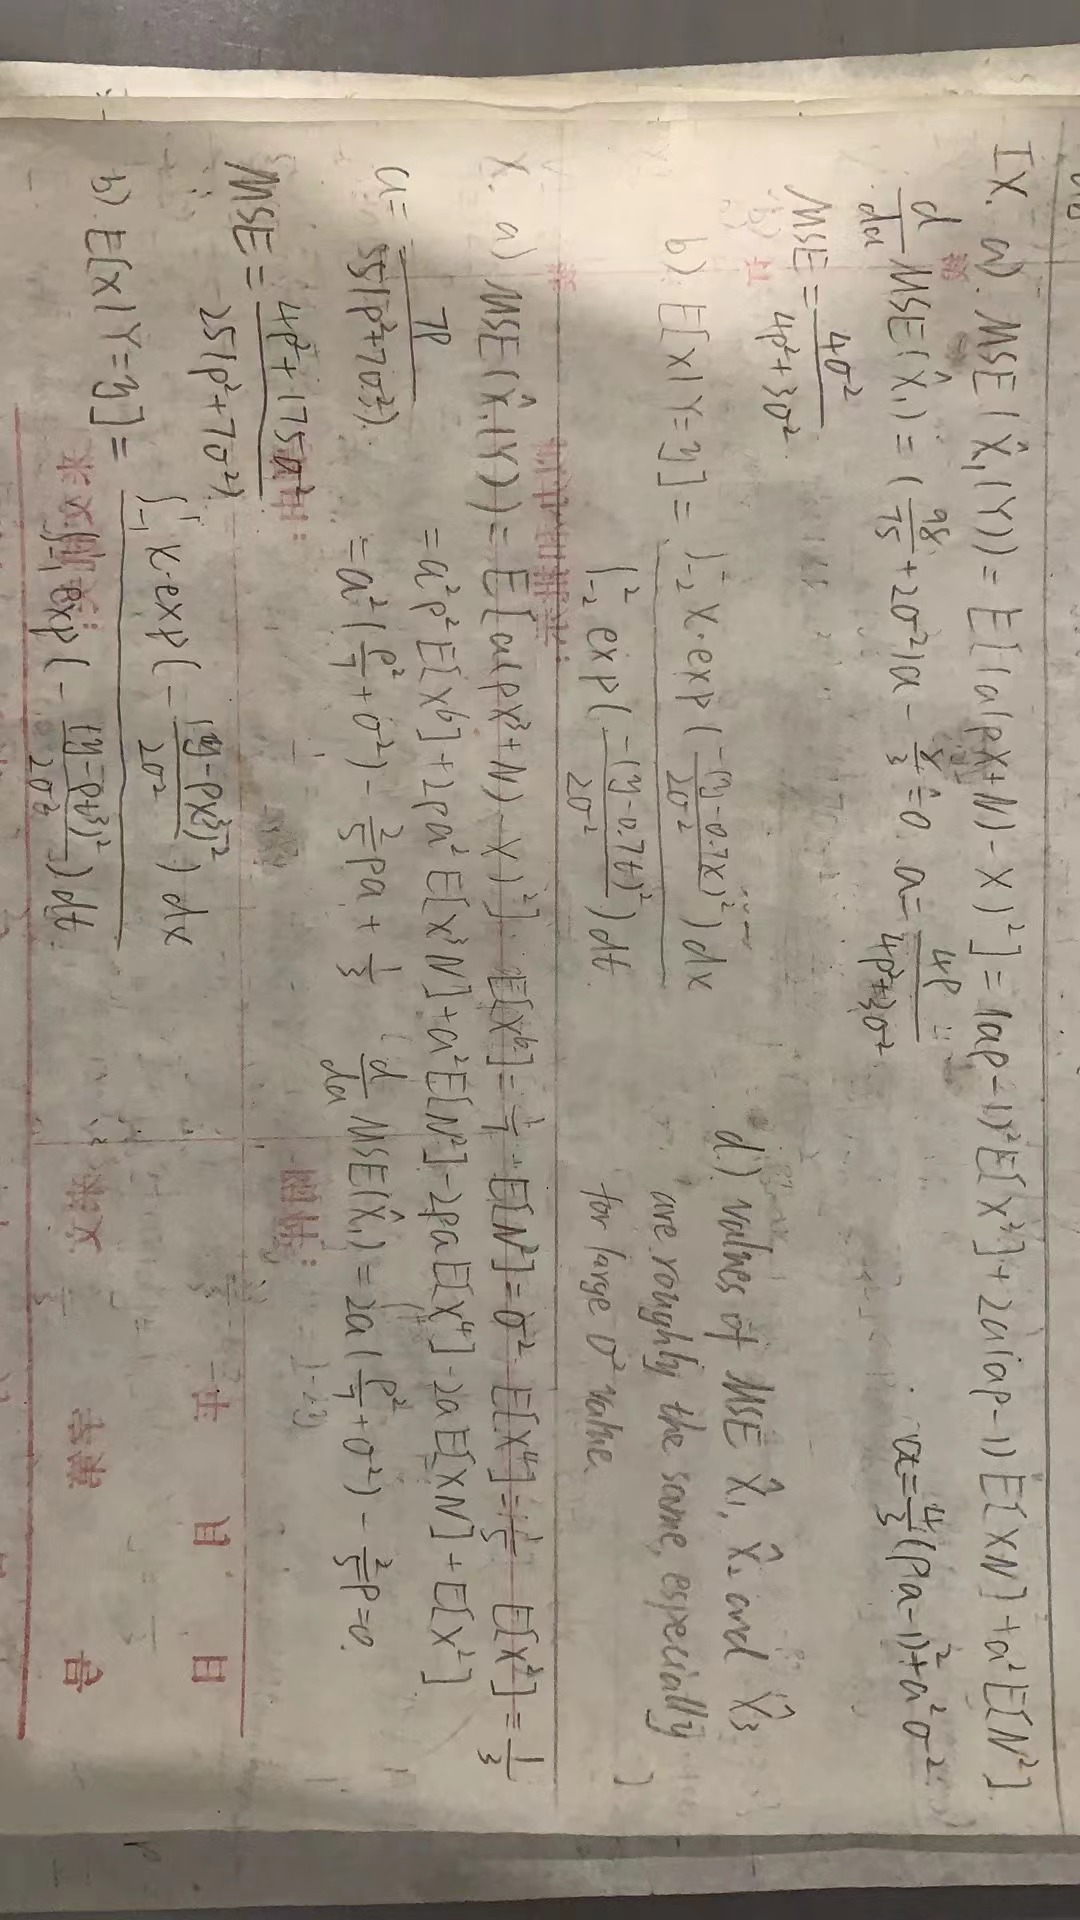 IX. a). MSE(X̂₁(Y)) = E[(a(ρX+N)-X)²] = (aρ-1)²E[X²] + 2a(aρ-1)E[XN] + a²E[N²].
d/da MSE(X̂₁) = (98/75 + 2σ²)a - 8/3 = 0. a = 4ρ/(4ρ²+3σ²) = 4/3(ρa-1)² + a²σ²
MSE = 4σ²/(4ρ²+3σ²).
b) E[X|Y=y] = ∫₋₂² x·exp(-(y-0.7x)²/2σ²)dx / ∫₋₂² exp(-(y-0.7t)²/2σ²)dt.
d.) values of MSE X̂₁, X̂₂ and X̂₃
are roughly the same, especially
for large σ² value.
X. a) MSE(X̂₁(Y)) = E[a(ρX³+N)-X)²] E[X⁶] = 1/7 E[N²] = σ² E[X⁴] = 1/5 E[X²] = 1/3
= a²ρ²E[X⁶] + 2ρa²E[X³N] + a²E[N²] - 2ρaE[X⁴] - 2aE[XN] + E[X²]
a = 7ρ/55(ρ²+7σ²).
= a²(ρ²/7 + σ²) - 2/5 ρa + 1/3 d/da MSE(X̂₁) = 2a(ρ²/7 + σ²) - 2/5 ρ = 0.
MSE = (4ρ²+175σ²)/25(ρ²+7σ²).
b). E[X|Y=y] = ∫₋₁¹ x·exp(-(y-ρx³)²/2σ²)dx / ∫₋₁¹ exp(-(y-ρt³)²/2σ²)dt.